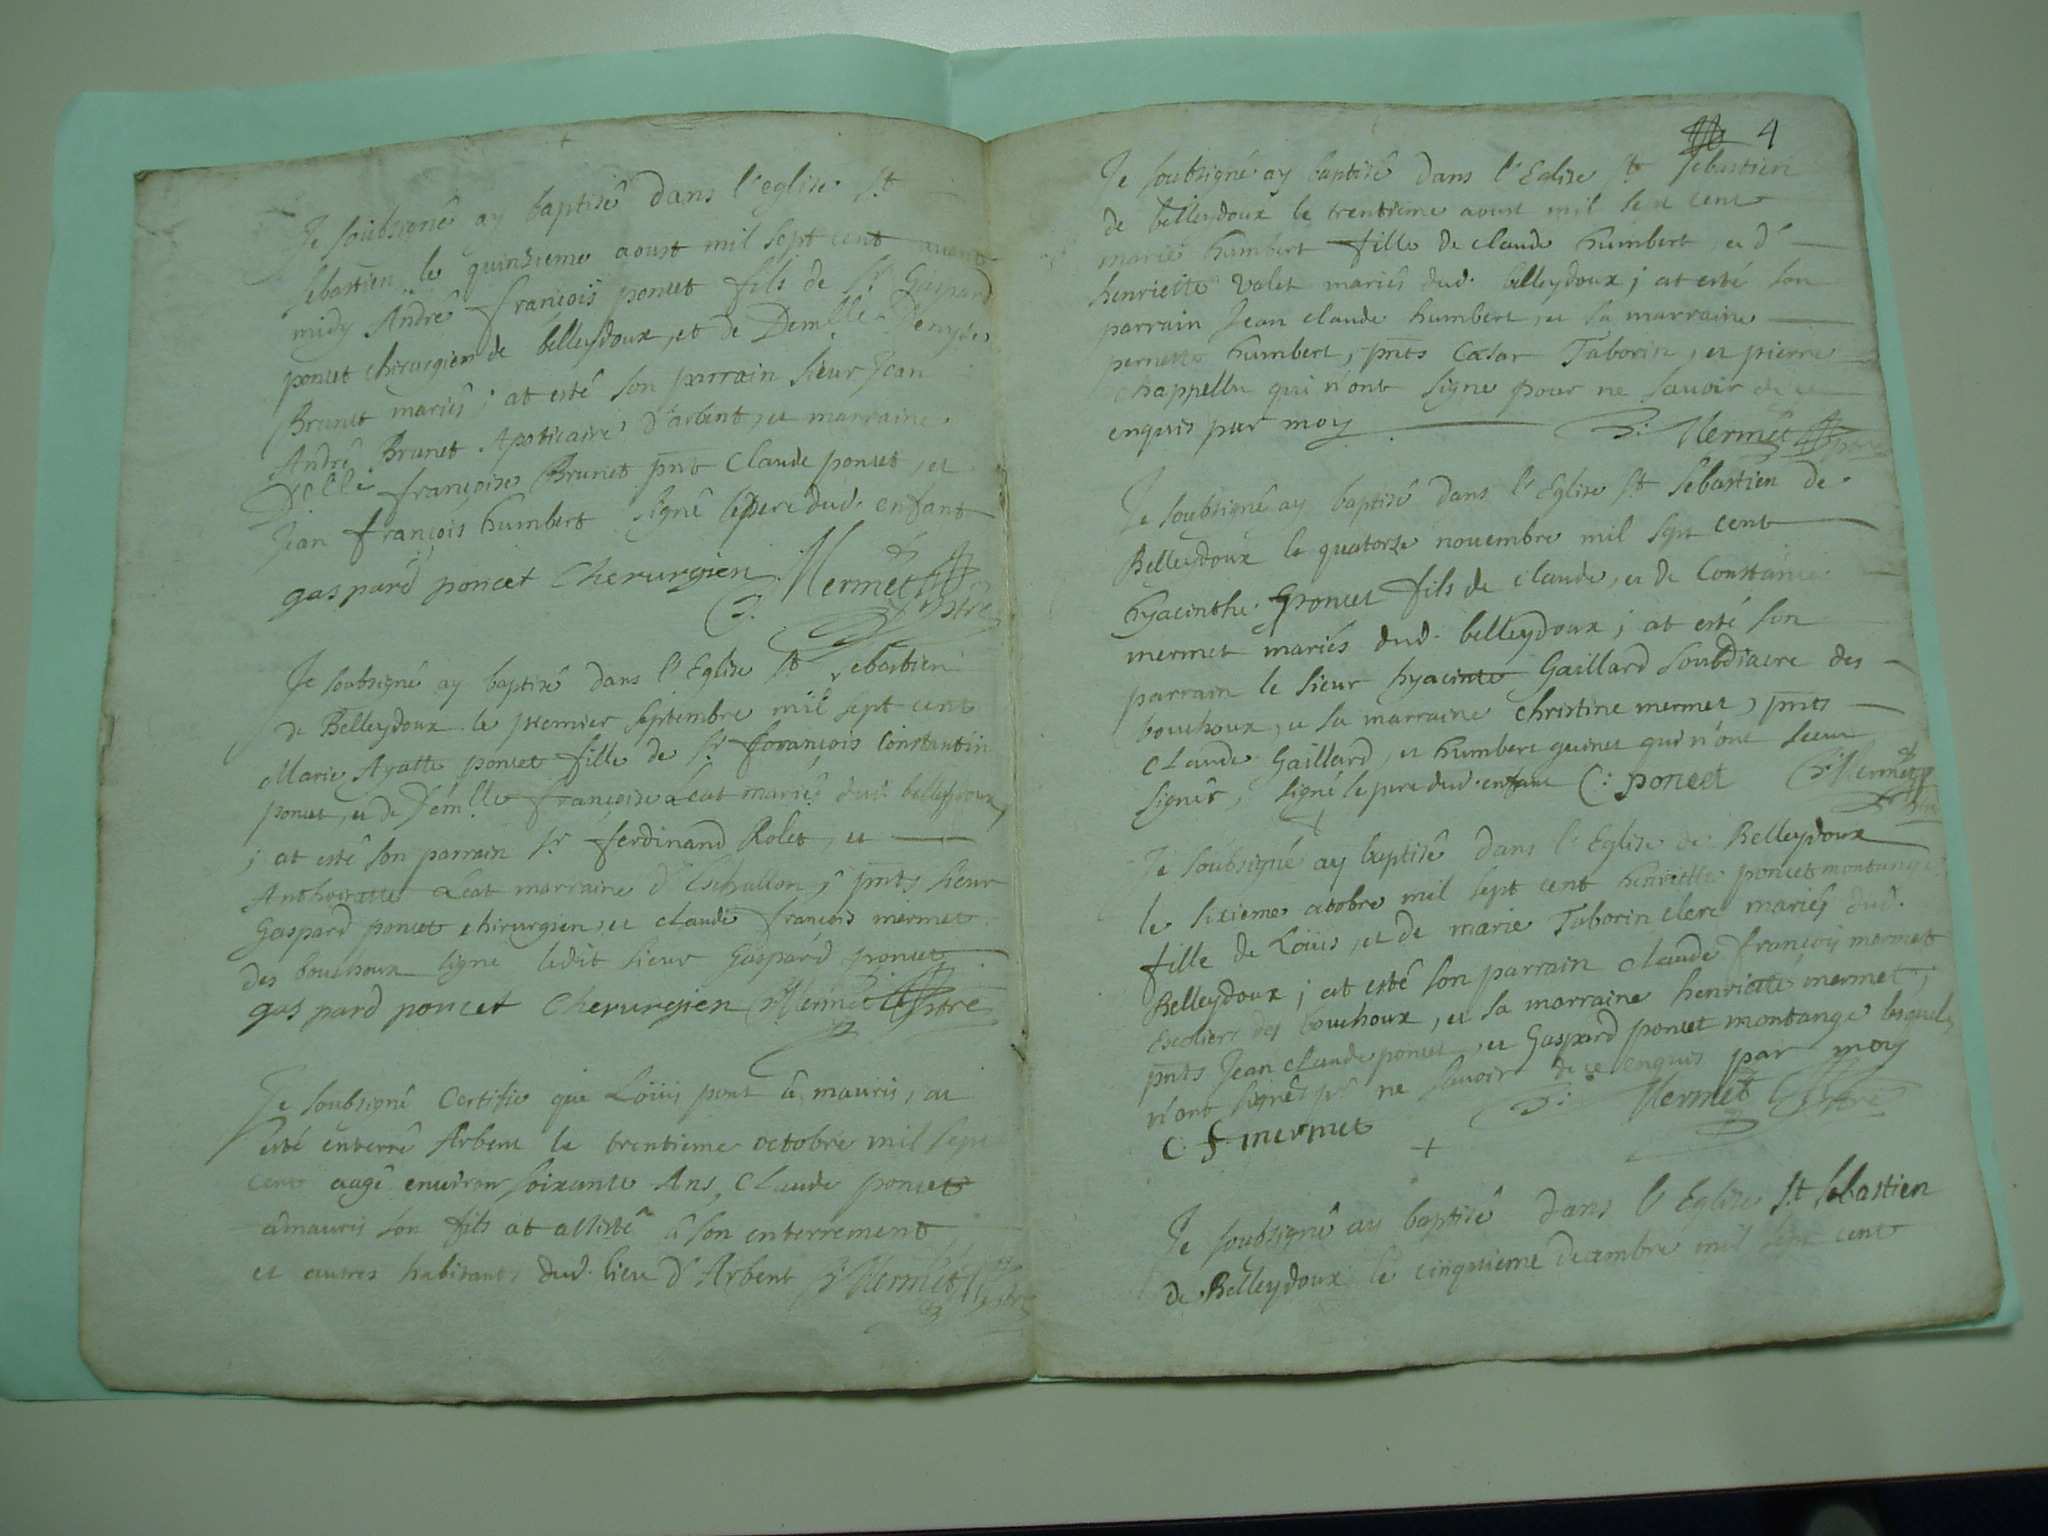 Je soubsigné ay baptisé dans l'eglise St
Sebastien le quinsieme aoust mil sept cent avant
midy André françois poncet fils de Sr Gaspard
poncet chirurgien de belleydoux, et de Demlle Denyse
Brunet mariés ; at esté son parrain sieur Jean
André Brunet Apoticaire d'arbent, et marraine
Dlle françoise Brunet pnt Claude poncet, et
Jean françois humbert signé le pere dud. enfant
gaspard poncet Cherurgien P. Mermet ptre
Je soubsigné ay baptisé dans l'Eglise St Sebastien
de Belleydoux le premier septembre mil sept cent
Marie Ayatte poncet fille de Sr francois Constantin
poncet, et de Demlle françoise Leat mariés dud. belleydoux
; at esté son parrain Sr ferdinand Rolet, et
Anthoinette Leat marraine d'Eschallon ; pnts sieur
Gaspard poncet chirurgien, et claude françois mermet
des bouchoux signe ledit sieur Gaspard poncet
gaspard poncet Cherurgien P. Mermet ptre
Je soubsigné Certifie que Loüis poncet à mauris, at
esté enterré Arbent le trentieme octobre mil sept
cent aagé environ soixante Ans, Claude poncet
âmauris son fils at assisté à son enterrement
et autres habitants dud. lieu d'Arbent P. Mermet ptre
4
Je soubsigné ay baptisé dans l'Eglise St Sebastien
de belleydoux le trentieme aoust mil sept cent
marie humbert fille de claude humbert, et d'
henriette Valet mariés dud. belleydoux ; at esté son
parrain Jean claude humbert, et sa marraine
pernette humbert, pnts Cæsar Taborin, et pierre
chappellu qui n'ont signe pour ne savoir de ce
enquis par moy P. Mermet ptre
Je soubsigné ay baptisé dans l'Eglise St Sebastien de
Belleydoux le quatorze novembre mil sept cent
hyacinthe poncet fils de claude, et de Constance
mermet mariés dud. belleydoux ; at esté son
parrain le sieur hyacinte Gaillard soubdiacre des
bouchoux, et sa marraine christine mermet, pnts
Claude Gaillard, et humbert guinet qui n'ont sceu
signer, signé le pere dud. enfant C: poncet P. Mermet ptre
Je soubsigné ay baptisé dans l'Eglise de Belleydoux
le sixieme octobre mil sept cent henriette poncet montange
fille de Loüis, et de marie Taborin clerc mariés dud.
Belleydoux ; at esté son parrain claude françois mermet
Escolier des bouchoux, et sa marraine henriette mermet,
pnts Jean claude poncet, et Gaspard poncet montange lesquels
n'ont signé pr ne savoir de ce enquis par moy
C. f. mermet P. Mermet ptre
Je soubsigné ay baptisé dans l'Eglise St Sebastien
de Belleydoux le cinquieme decembre mil sept cent